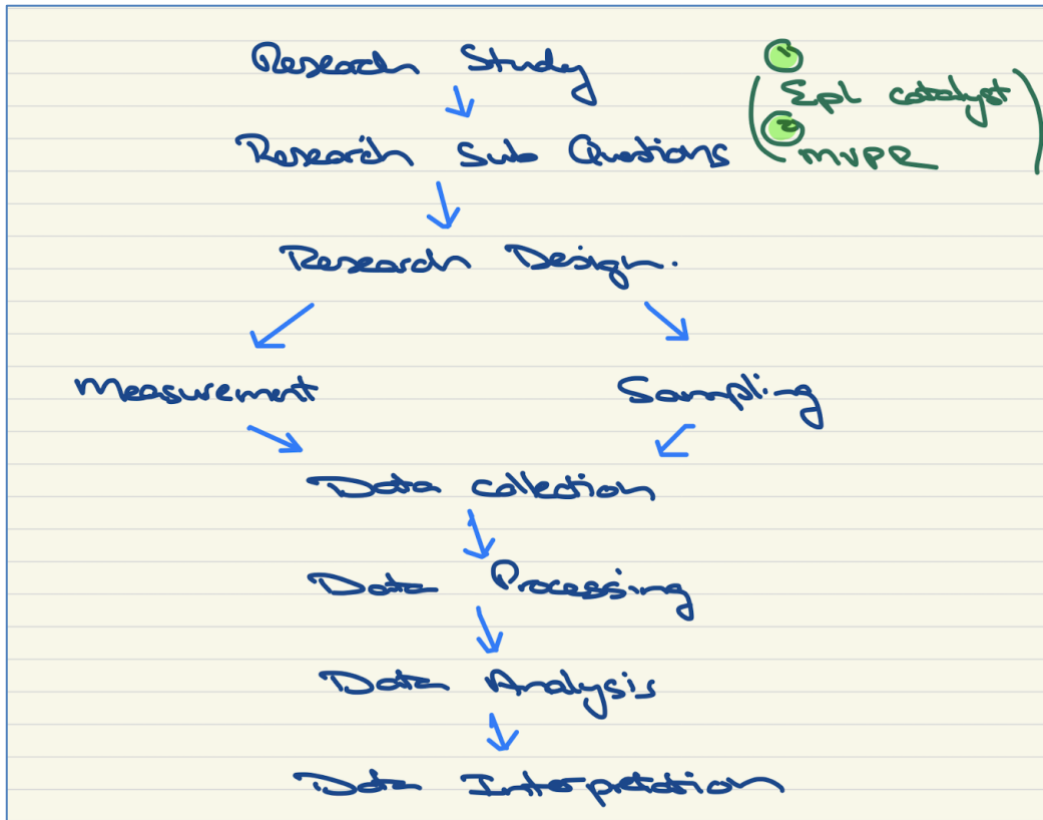 Research Study
1
Epl catalyst
Research Sub Questions
2
MVPR
Research Design.
Measurement
Sampling
Data Collection
Data Processing
Data Analysis
Data Interpretation